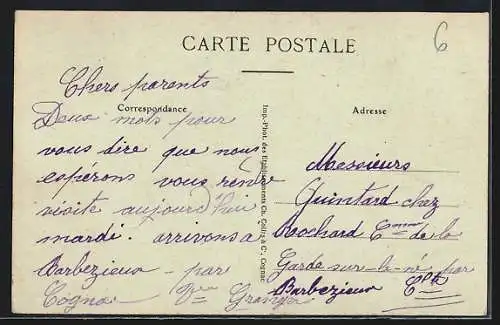 6
CARTE POSTALE
Chers parents
Correspondance
Deux mots pour
vous dire que nous
espérons vous rendre
visite aujourd'hui
mardi. arrivons a
Barbezieux - par
Cognac Vve Granger
Imp.-Phot. des Etablissements Ch. Collas & Cie, Cognac
Adresse
Messieurs
Quintard chez
Rochard Cmne de la
Garde-sur-le-né par
Barbezieux Cte